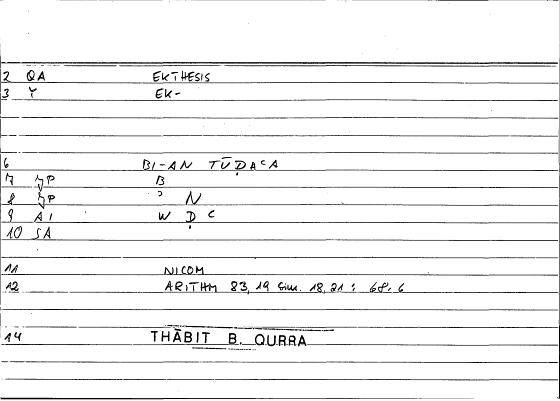 2 QA EKTHESIS
3 Y EK-
6 BI-AN TŪḌAʿA
7 P B
8 P ʾ N
9 AI W Ḍ ʿ
10 SA
11 NICOM
12 ARITHM 83,19 Sim. 18,21 : 68.6
14 THĀBIT B. QURRA